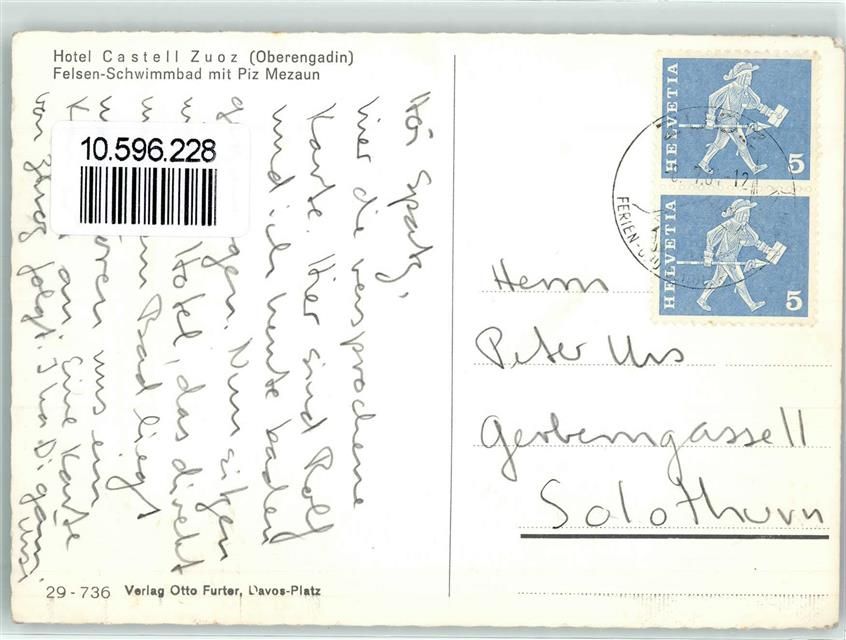 Hotel Castell Zuoz (Oberengadin)
Felsen-Schwimmbad mit Piz Mezaun
10.596.228
Hoi Spatz,
hier die versprochene
Karte. Hier sind Rolf
und ich heute baden
Nun sitzen
Hotel, das direkt
Bad liegt
uns ein
an. Eine Karte
von folgt.
29-736 Verlag Otto Furter, Davos-Platz
HELVETIA
5
HELVETIA
5
FERIEN-
Herrn
Peter Urs
Gerberngasse 11
Solothurn